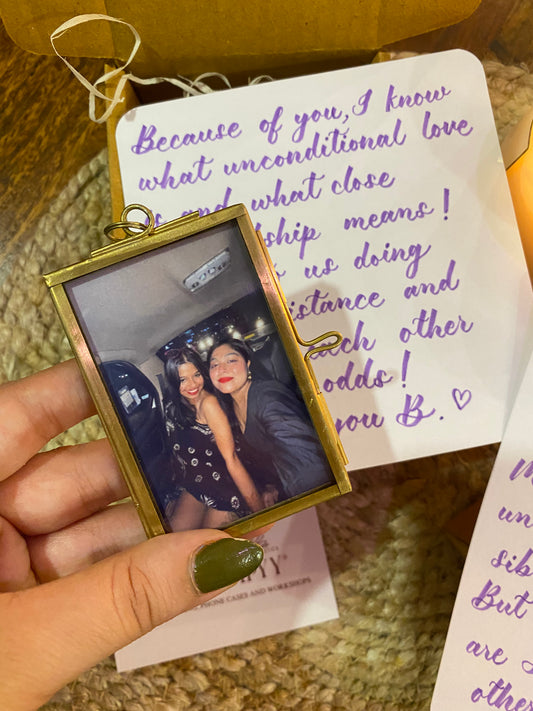 Because of you, I know
what unconditional love
is and what close
ship means!
us doing
istance and
each other
odds!
you B. ♡
ONE CASES AND WORKSHOPS
M
un
sib
But
are
other